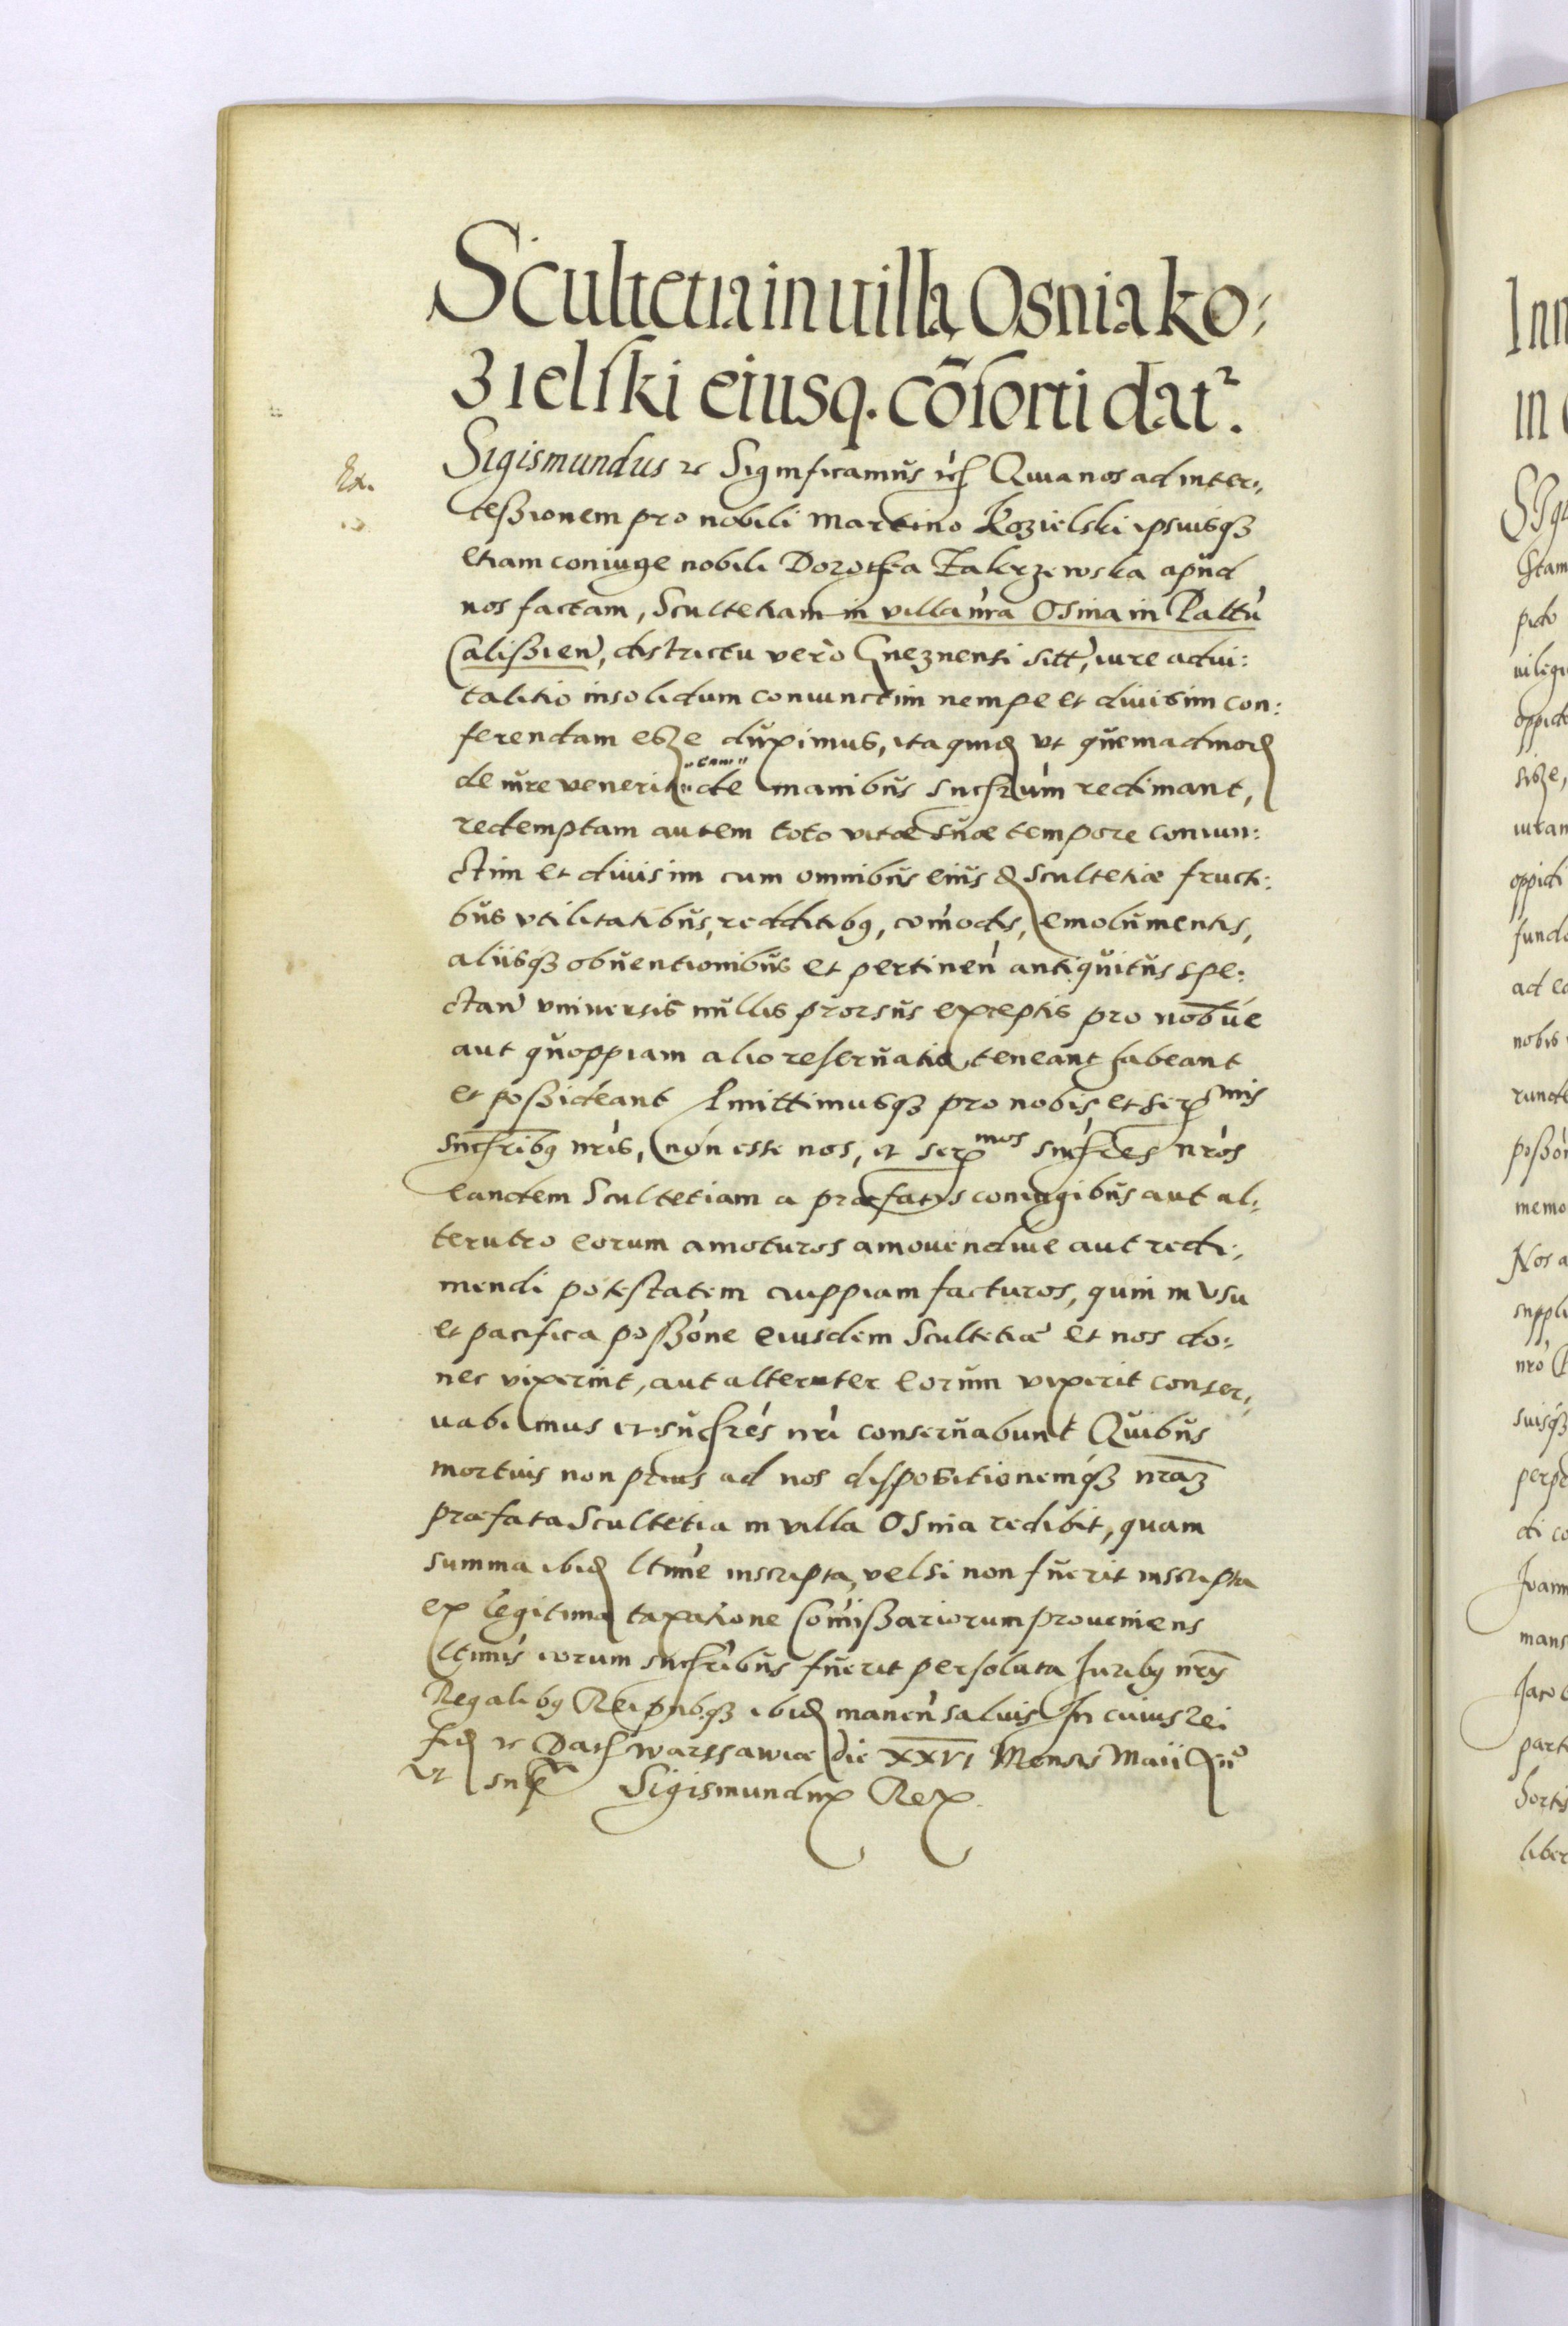 Scultetia in uilla Osnia ko:
zielski eiusq. cõsorti dat².
Sigismundus ꝛc Significamus ꝛc̃ Quia nos ad inter:
cessionem pro nobili Martino Kozielski ipsuisqꝫ
etiam coniuge nobili Dorothea Zakrzewska apud
nos factam, Scultetiam in villa nr̃a Osnia in Palt̃tu
Calissien̾, districtu vero Gneznensi sitt̾, iure advi:
talitio insolidum coniunctim nempe et divisim con:
ferendam esse duximus, ita quid̾ vt quemadmod̾
de iure venerit "eam" de manibus succr̃um redimant,
redemptam autem toto vitae suae tempore coniun:
ctim et divisim cum omnibus eius d̾ Scultetiae fructi:
bus vtilitatibus, redditibꝫ, com̃odis, emolumentis,
aliisqꝫ obuentionibus et pertinen̾ antiquitus spe:
ctan̾ vniuersis nullis prorsus exceptis pro nob̃ ue
aut quoppiam alio reseruatis teneant habeant
et possideant Pmittimusqꝫ pro nobis et serᵐⁱˢ
succr̃ibꝫ nr̃is, non esse nos, et serᵐᵒˢ succr̃es nr̃os
eandem Scultetiam a praefatis coniugibus aut al:
terutro eorum amoturos amouendiue aut redi:
mendi potestatem cuippiam facturos, quin in vsu
et pacifica possõne eiusdem Scultetiae et nos do:
nec vixerint, aut alteruter eorum vixerit conser:
uabimus et succr̃es nr̃i conseruabunt Quibus
mortuis non prius ad nos dispositionemqꝫ nr̃aꝫ
praefata Scultetia in villa Osnia redibit, quam
summa ibid̾ ltim̃e inscripta, vel si non fuerit inscripta
ex legitima taxatione Com̃issariorum proueniens
ltimis eorum succr̃ibus fuerit persoluta Juribꝫ nr̃is
Regalibꝫ Reipubqꝫ ibid̾ manen̾ saluis In cuius rei
fid̾ ꝛc Dat̾ Warssawiae die XXVI Mensis Maii
vt supᵃ Sigismundus Rex